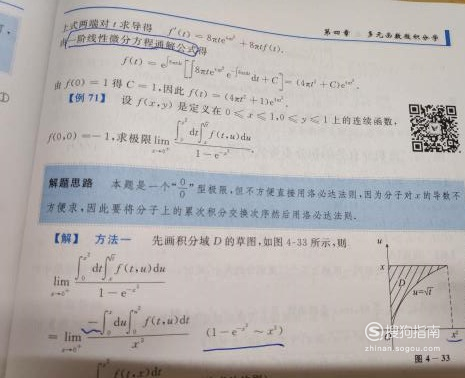 上式两端对 t 求导得 f'(t) = 8πte^{4πt²} + 8πtf(t). 第四章 多元函数微积分学
由一阶线性微分方程通解公式得
f(t) = e^{∫8πtdt}[∫8πte^{4πt²} e^{-∫8πtdt}dt + C] = (4πt² + C)e^{4πt²}.
由 f(0) = 1 得 C = 1,因此 f(t) = (4πt² + 1)e^{4πt²}.
【例 71】 设 f(x,y) 是定义在 0 ≤ x ≤ 1,0 ≤ y ≤ 1 上的连续函数,
f(0,0) = -1,求极限 lim_{x→0⁺} \frac{∫_0^{x²} dt ∫_x^{√t} f(t,u)du}{1 - e^{-x³}}.
解题思路 本题是一个“0/0”型极限,但不方便直接用洛必达法则,因为分子对 x 的导数不
方便求,因此要将分子上的累次积分交换次序然后用洛必达法则.
【解】 方法一 先画积分域 D 的草图,如图 4-33 所示,则
lim_{x→0⁺} \frac{∫_0^{x²} dt ∫_x^{√t} f(t,u)du}{1 - e^{-x³}}
= lim_{x→0⁺} \frac{-∫_0^x du ∫_0^{u²} f(t,u)dt}{x³} (1 - e^{-x³} ~ x³)
u
x
D
u=√t
O
x²
图 4-33
搜狗指南
zhinan.sogou.com
f(t,x)dt